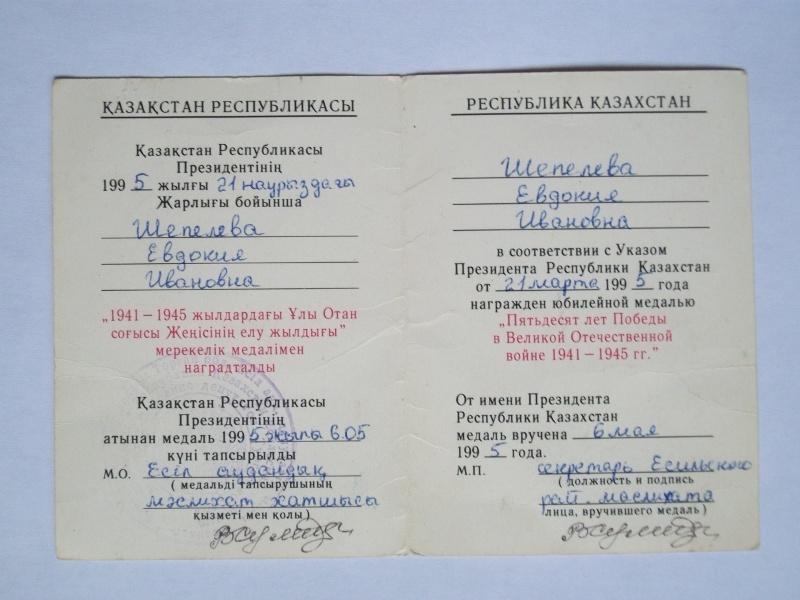 ҚАЗАҚСТАН РЕСПУБЛИКАСЫ
Қазақстан Республикасы
Президентінің
1995 жылғы 21 наурыздағы
Жарлығы бойынша
Шепелева
Евдокия
Ивановна
„1941 – 1945 жылдардағы Ұлы Отан
соғысы Жеңісінің елу жылдығы”
мерекелік медалімен
наградталды
Қазақстан Республикасы
Президентінің
атынан медаль 1995 жылы 6.05
күні тапсырылды
М.О. Есіл аудандық
( медальді тапсырушының
мәслихат хатшысы
қызметі мен қолы )
РЕСПУБЛИКА КАЗАХСТАН
Шепелева
Евдокия
Ивановна
в соответствии с Указом
Президента Республики Казахстан
от 21 марта 1995 года
награжден юбилейной медалью
„Пятьдесят лет Победы
в Великой Отечественной
войне 1941 – 1945 гг.”
От имени Президента
Республики Казахстан
медаль вручена 6 мая
1995 года.
М.П. секретарь Есильского
( должность и подпись
рай маслихата
лица, вручившего медаль )